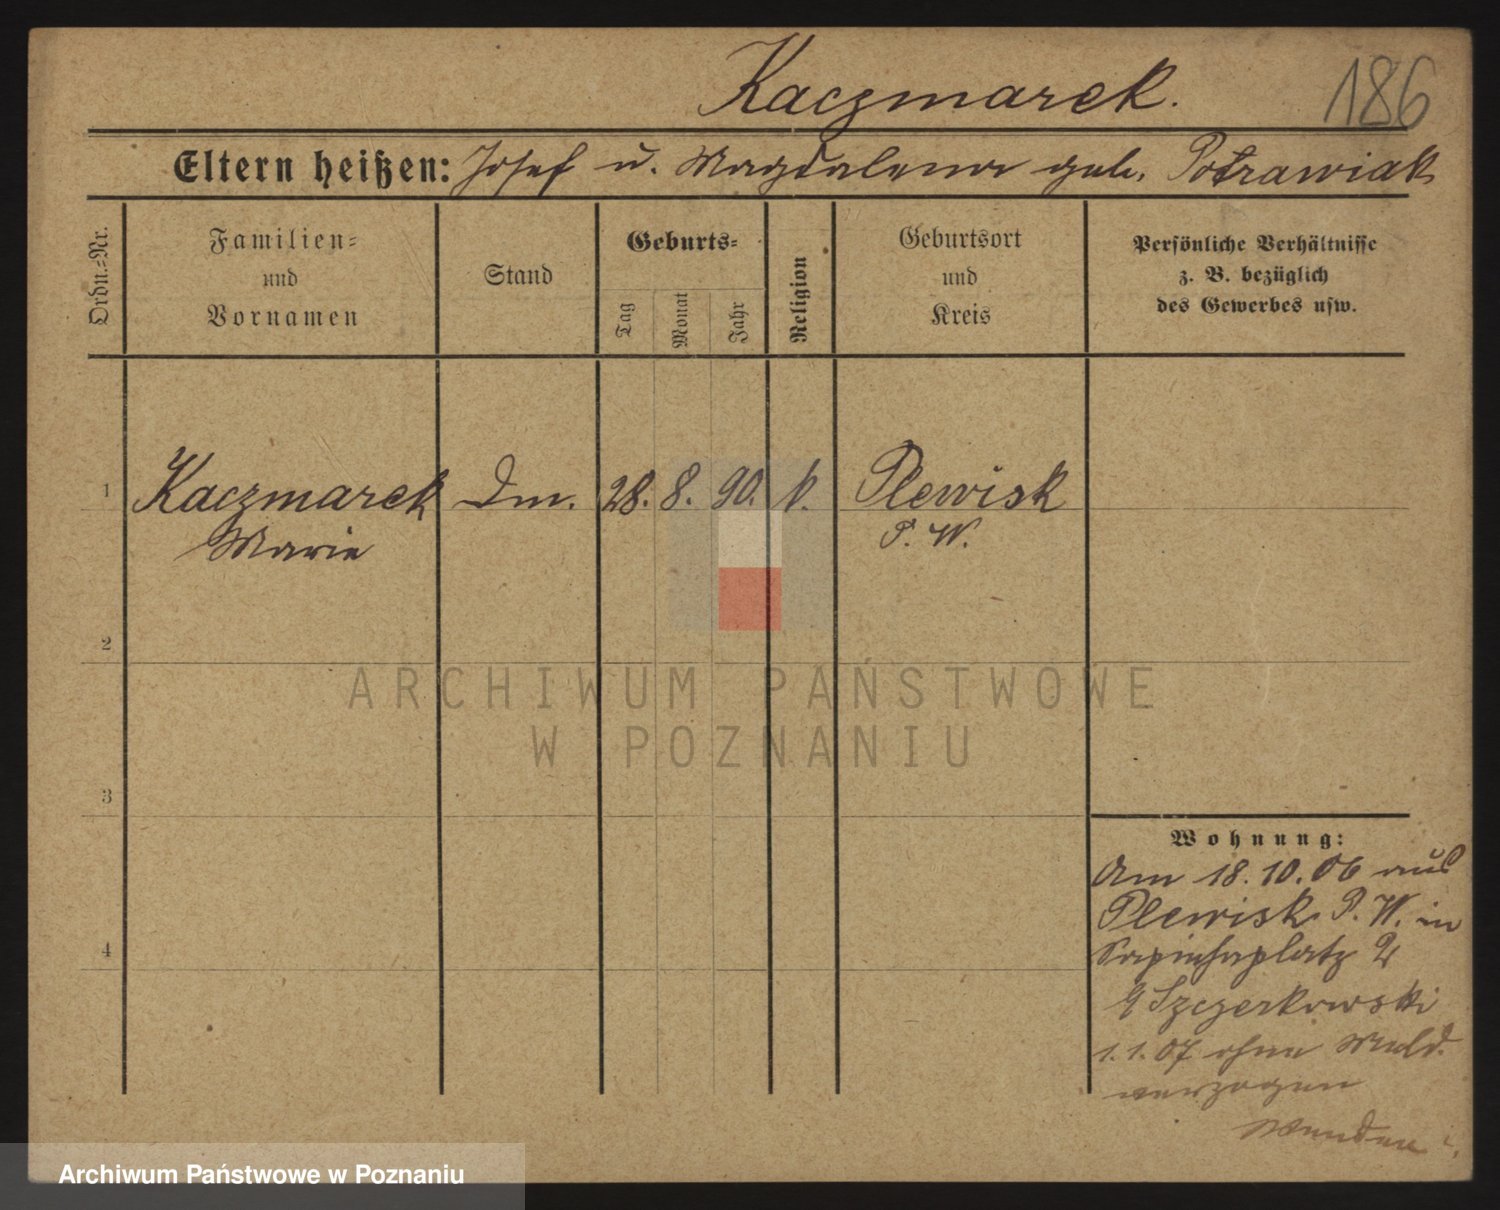 Kaczmarek.
186
Eltern heißen: Josef u. Magdalena geb. Potrawiak
Ordn.-Nr.
Familien-
und
Vornamen
Stand
Geburts-
Tag
Monat
Jahr
Religion
Geburtsort
und
Kreis
Persönliche Verhältnisse
z. B. bezüglich
des Gewerbes usw.
1
Kaczmarek Dm. 28. 8. 90. k. Plewisk
Marie P. W.
2
ARCHIWUM PAŃSTWOWE
W POZNANIU
3
Wohnung:
Am 18.10.06 aus
Plewisk P. W. in
4
Sapiehaplatz 2
Szczerkowski
1.1.07 ohne Meld.
verzogen
Wenden
Archiwum Państwowe w Poznaniu